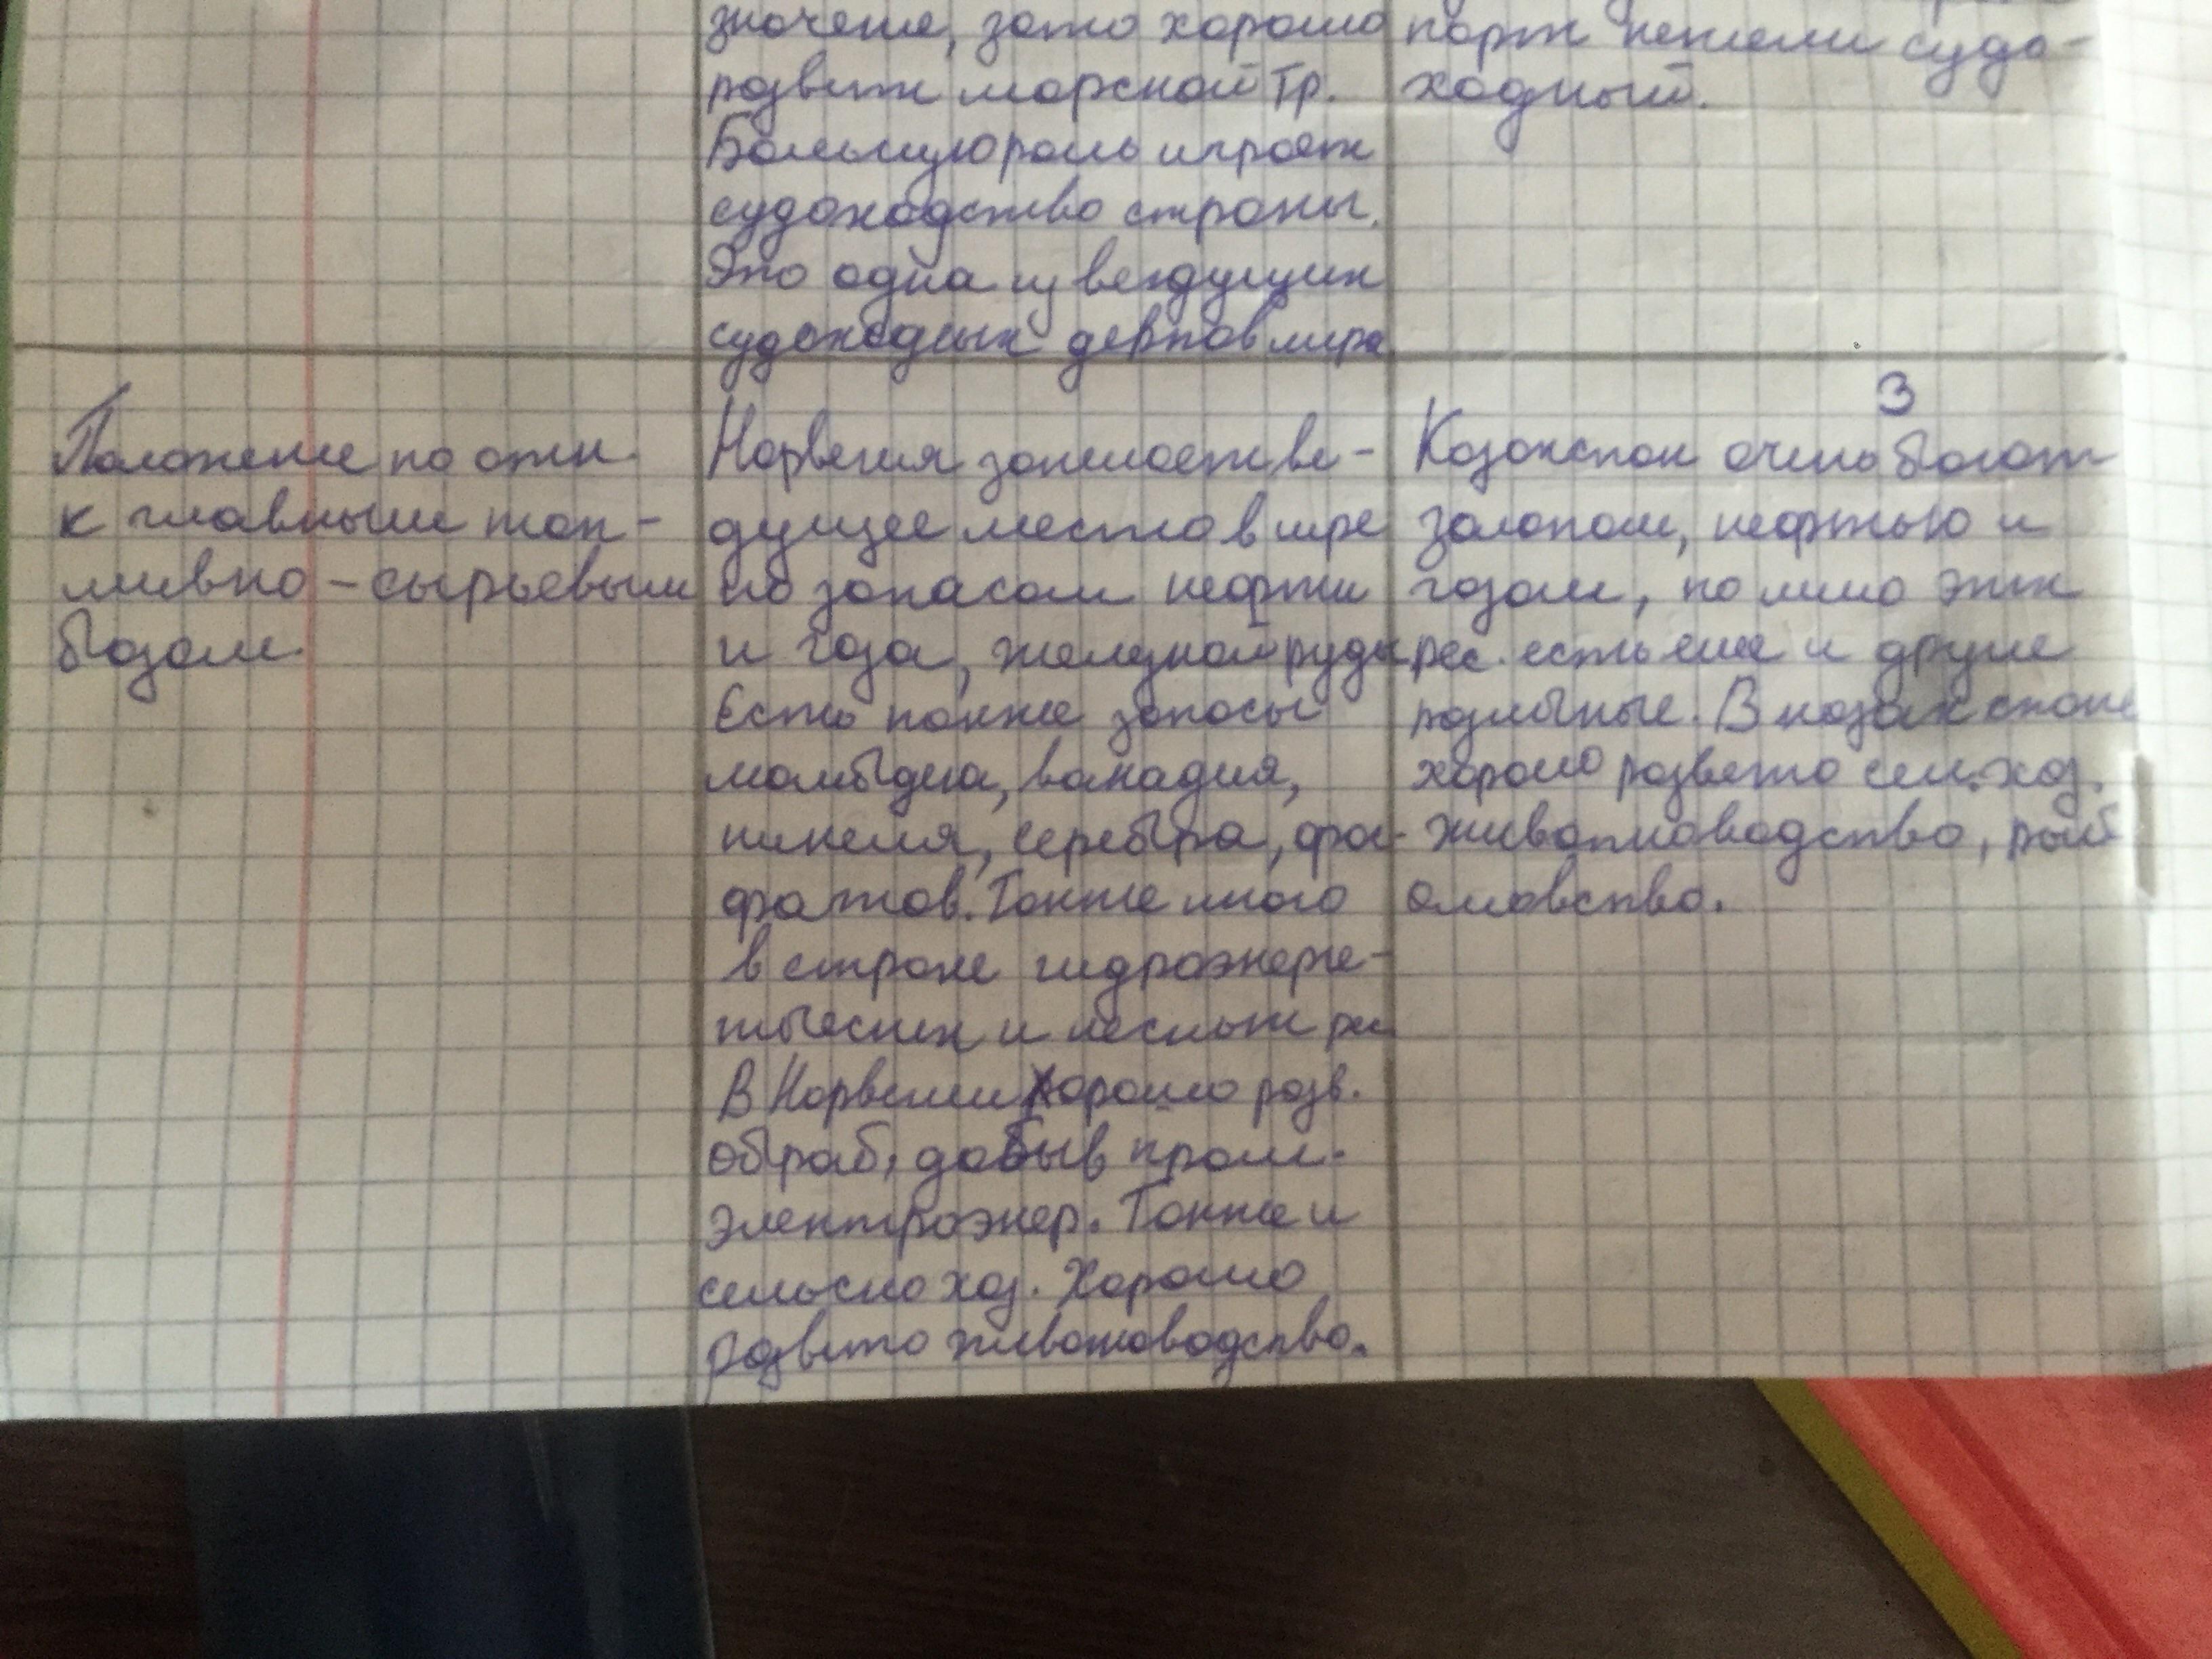 значение, зато хорошо
развит морской тр.
Большую роль играет
судоходство страны.
Это одна из вездущих
судоходных держав мира
порт нежели судо-
ходный.
Положение по отн.
к главным топ-
ливно-сырьевым
базам.
Норвегия занимает ве-
дущее место в мире
по запасам нефти
и газа, железной руды
Есть также запасы
молибдена, ванадия,
никеля, серебра, фос-
фатов. Также много
в стране гидроэнерге-
тических и лесных рес
В Норвегии хорошо разв.
обраб, добыв пром.
электроэнер. Также и
сельско хоз. Хорошо
развито животноводство.
3
Казахстан очень богат
золотом, нефтью и
газом, помимо этих
рес. есть еще и другие
различные. В казахстане
хорошо развето сель.хоз.
животноводство, рыб
оловство.